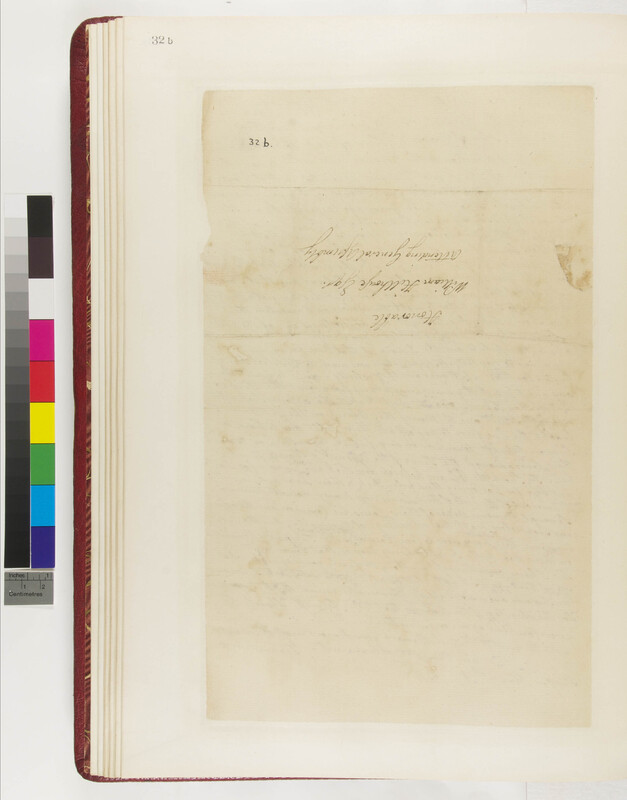 32 b
32 b.
Honorable
William Hillhouse Esqr.
attending General Assembly
Inches 1
1 2
Centimetres